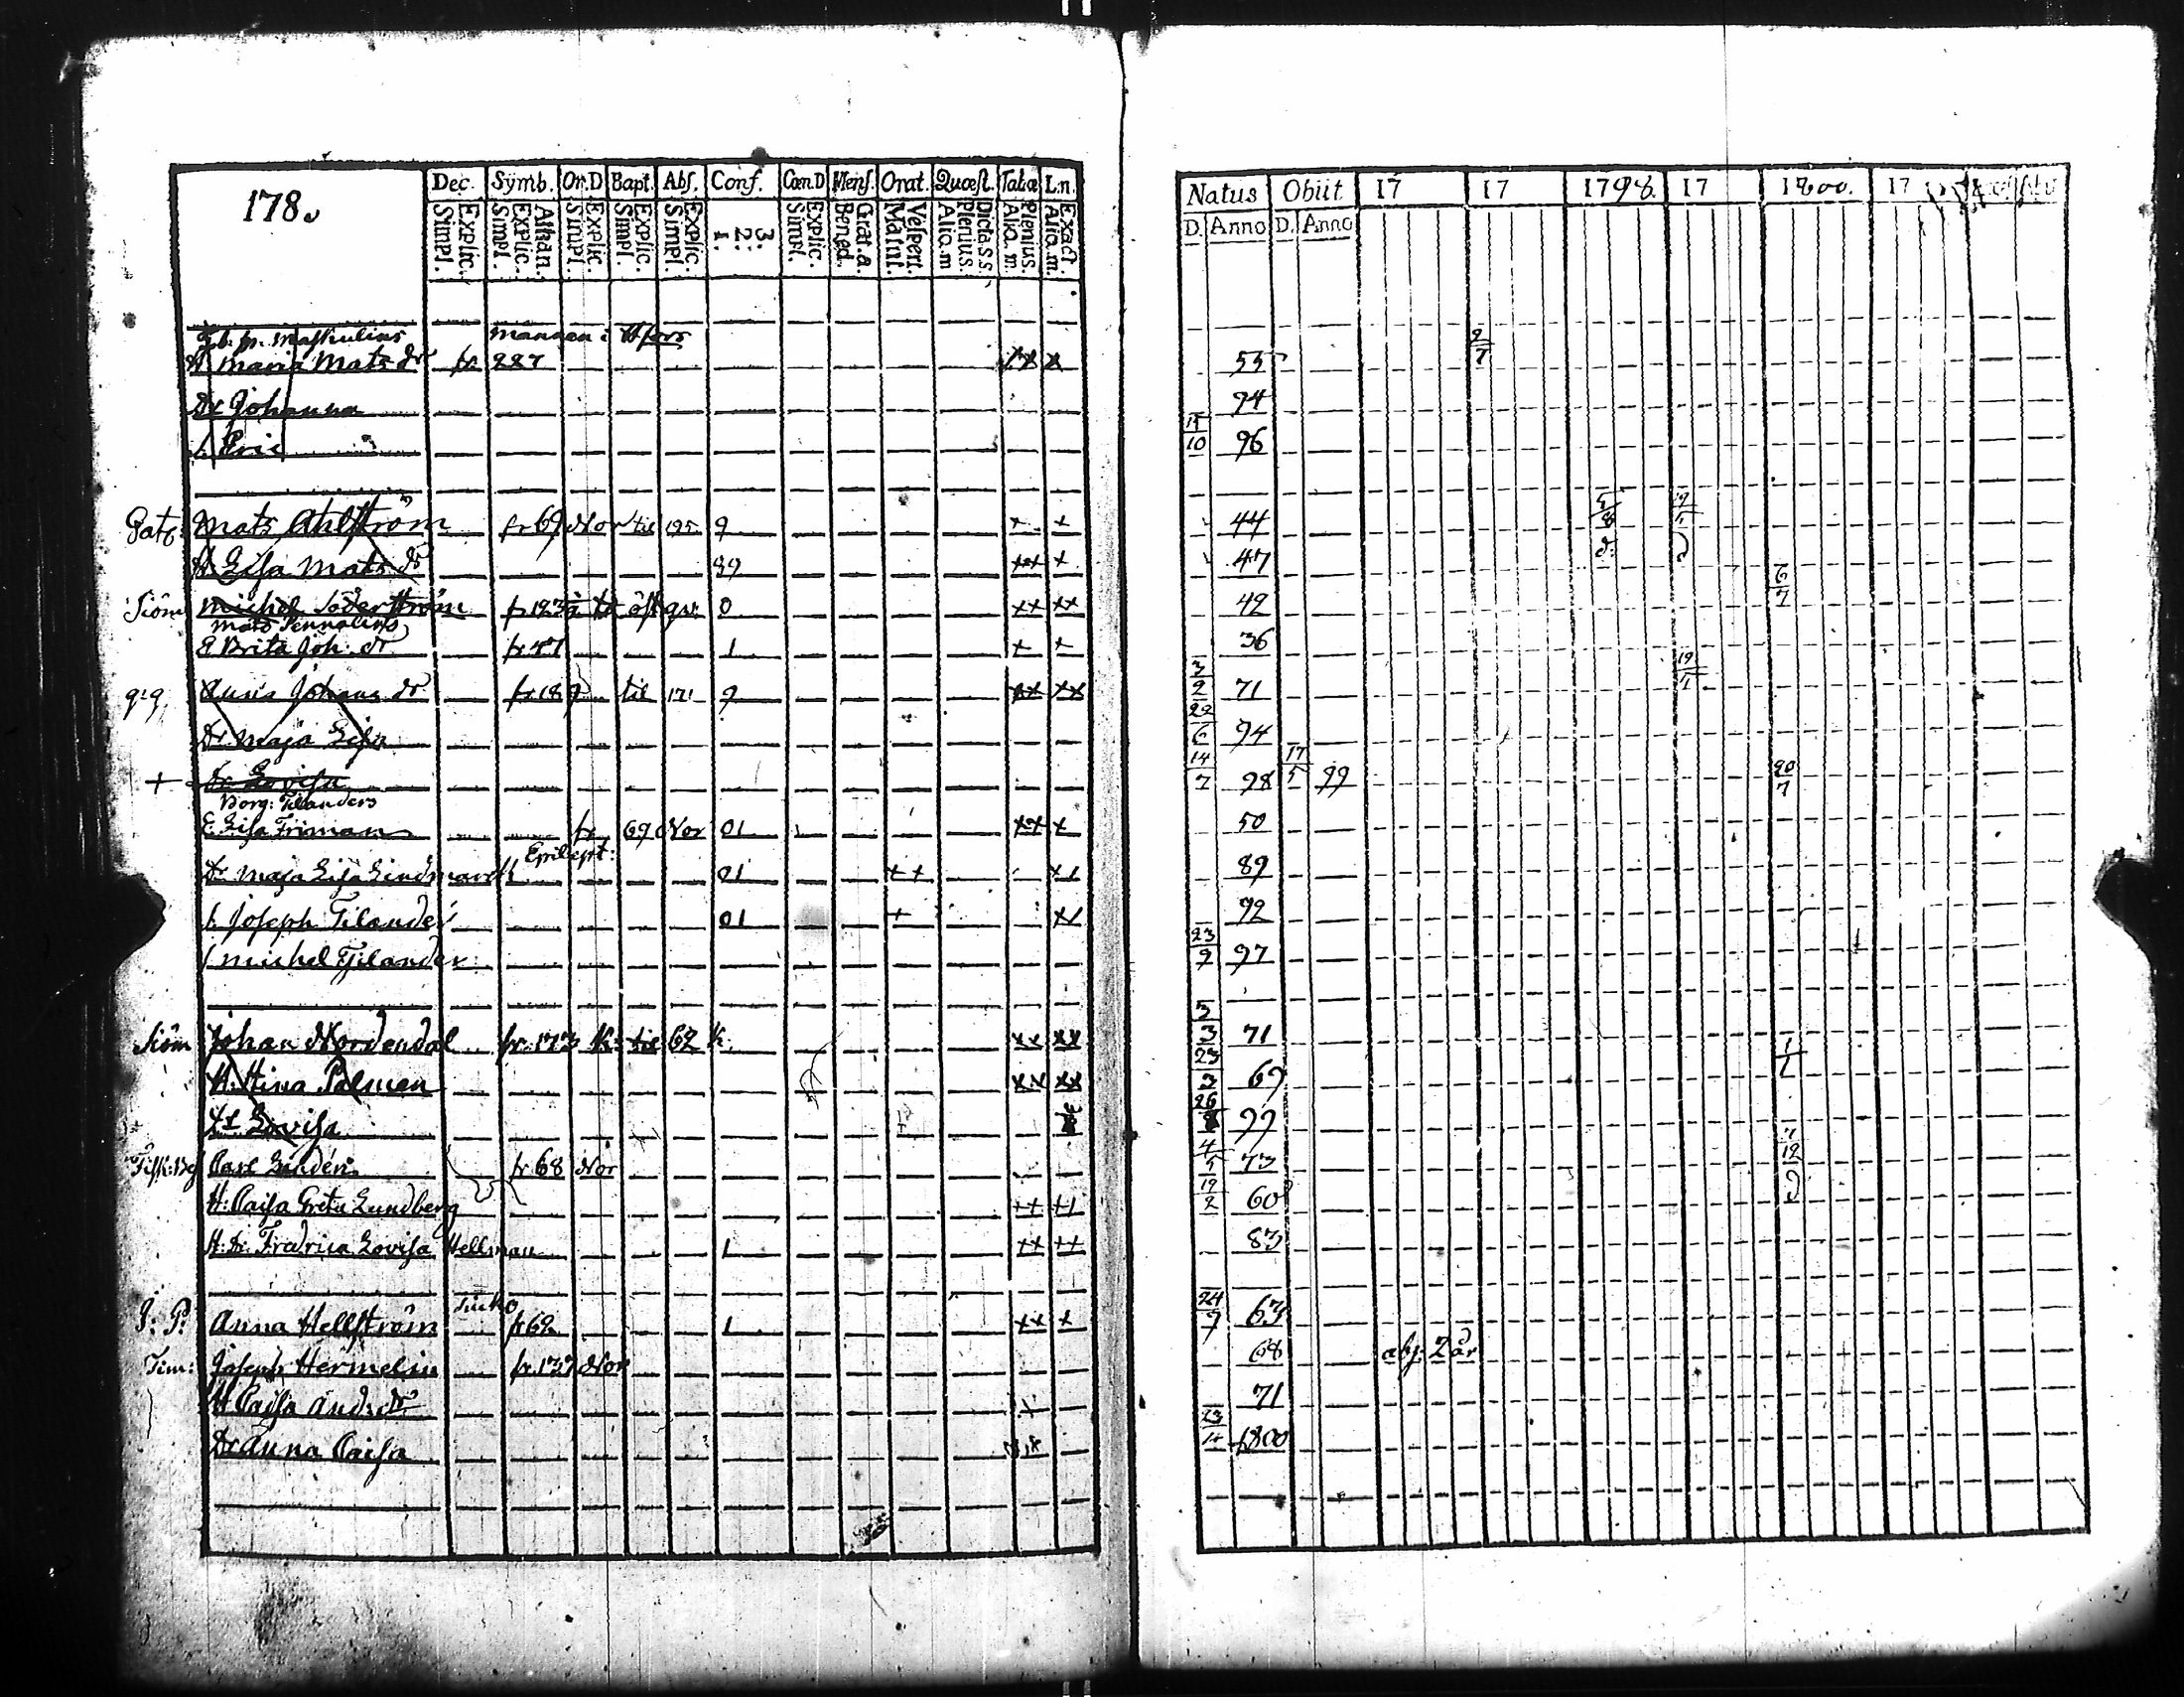 178.
Dec. Symb. Or.D Bapt. Abs. Conf. Cœn.D Mens. Orat. Quæst. Tabæ L.n.
Explic. Simpl. Athan. Explic. Simpl. Explic. Simpl. Explic. Simpl. Explic. Simpl. 3: 2: 1. Explic. Simpl. Grat.a. Bened. Vespert. Matut. Dicta.s.s. Plenius. Aliq.m Plenius. Aliq.m Exact. Aliq.m.
Natus Obiit 17 17 1798. 17 1800. 17
D. Anno D. Anno
mannen i
H Maria Mats dr fr 227 xx x 55 2/7
Dr Johanna 94
s. Eric 15/10 96
Mats Ahlström fr 69 Nor til 195 9 x x 44 5/8 19/1
H. Lisa Mats dr 89 xx x 47
Siöm Michel Söderström fr 123 0 xx xx 42 6/7
Mats
E Brita Joh. dr fr 47 1 x x 36
Anna Johans dr fr 189 til 171 9 xx xx 3/2 71 19/1
Dr. Maja Lisa 22/6 94
+ Dr. Lovisa 14/7 98 17/5 99 20/7
Borg: Tilanders
E. Lisa Friman fr 69 Nor 01 xx x 50
Epilept:
Dr Maja Lisa Lindmarck 01 ++ x1 89
s. Joseph Tilander 01 + x1 92
s Michel Tilander 23/9 97
Siöm Johan Nordendal fr. 173 K: til 62 K. xx xx 3/3 71
H. Stina Palman xx xx 23/3 69 1/1
Dr Lovisa 26 99
Carl Lindén fr 68 Nor 4/5 73 7/12
H: Caisa Greta Lundberg ++ +1 19/2 60
H: Dr. Fredrica Lovisa Hellman 1 xx ++ 83
Anna Hellström fr 62 1 xx x 24/9 63
Tim: Joseph Hermelin fr. 137 Nor 68 abs: 2 år
H Caisa And: dr x 71
Dr Anna Caisa 23 1800